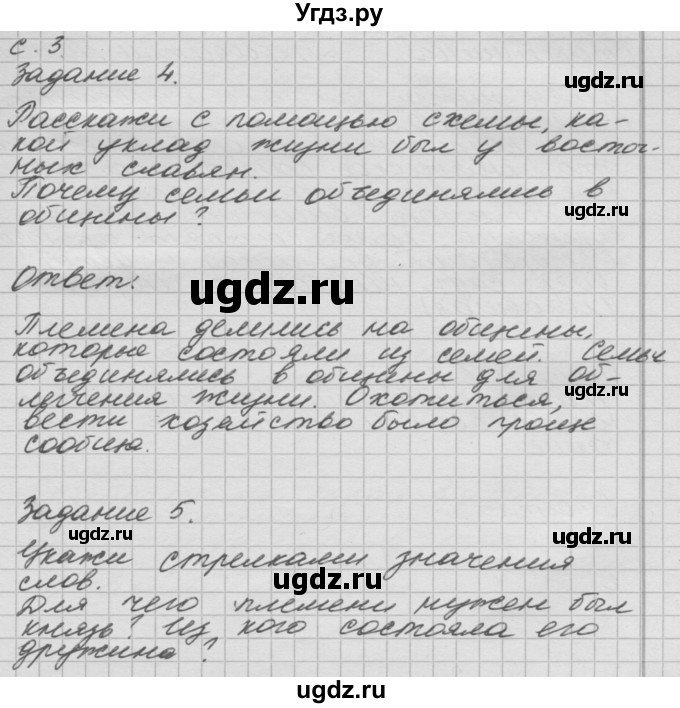 Угдз.ру
с. 3
Задание 4.
ugdz.ru
Расскажи с помощью схемы, ка-
ugdz.ru
кой уклад жизни был у восточ-
ных славян.
Почему семьи объединялись в
общины?
ugdz.ru
Ответ:
ugdz.ru
Племена делились на общины,
которые состояли из семей. Семьи
объединялись в общины для об-
легчения жизни. Охотиться,
ugdz.ru
вести хозяйство было проще
сообща.
Задание 5.
ugdz.ru
ugdz.ru
Укажи стрелками значения
слов.
ugdz.ru
Для чего племени нужен был
князь? Из кого состояла его
дружина?
ugdz.ru
ugdz.ru